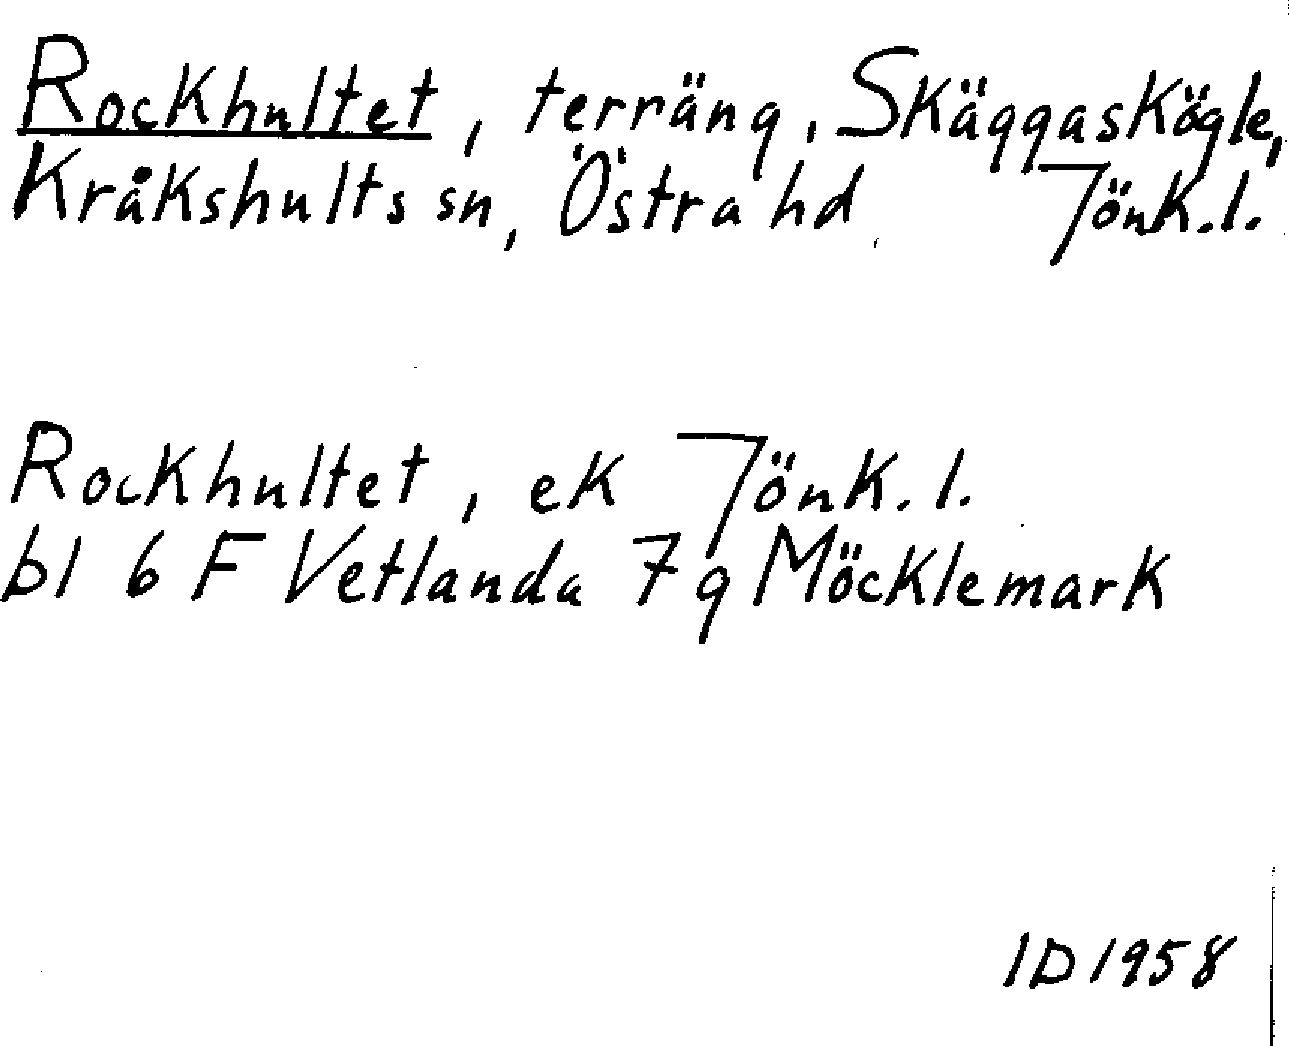 Rockhultet, terräng, Skäggaskögle,
Kråkshults sn, Östra hd, Jönk.l.
Rockhultet, ek Jönk.l.
bl 6 F Vetlanda 7 g Möcklemark
ID 1958